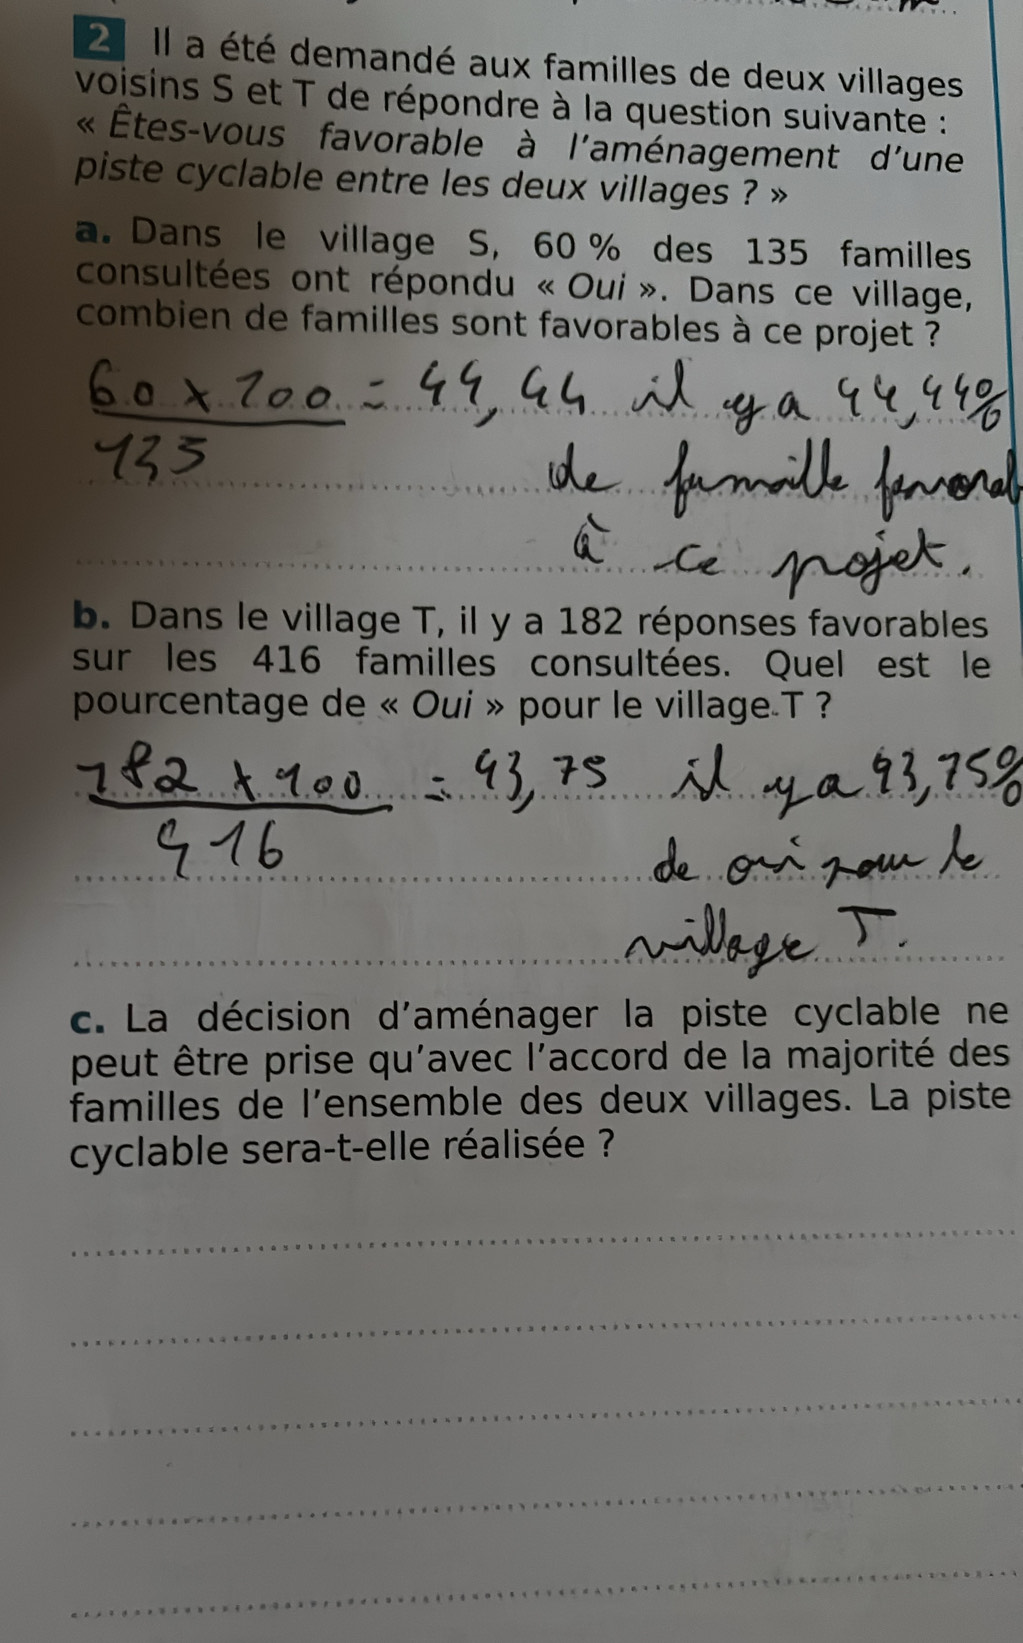 2 Il a été demandé aux familles de deux villages
voisins S et T de répondre à la question suivante :
« Êtes-vous favorable à l'aménagement d'une
piste cyclable entre les deux villages ? »
a. Dans le village S, 60 % des 135 familles
consultées ont répondu « Oui ». Dans ce village,
combien de familles sont favorables à ce projet ?
60 x 100 = 44,44 il y a 44,44%
135
de famille favorabl
à ce projet.
b. Dans le village T, il y a 182 réponses favorables
sur les 416 familles consultées. Quel est le
pourcentage de « Oui » pour le village T ?
182 x 100 = 43,75 il y a 43,75%
416
de oui pour le
village T.
c. La décision d'aménager la piste cyclable ne
peut être prise qu'avec l'accord de la majorité des
familles de l'ensemble des deux villages. La piste
cyclable sera-t-elle réalisée ?